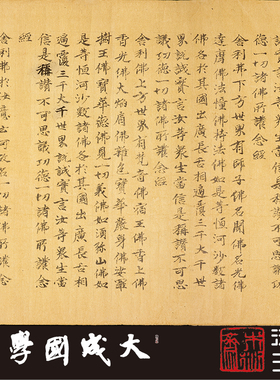 德一切諸佛所護念經
舍利弗下方世界有師子佛名聞佛名光佛
達摩佛法幢佛持法佛如是等恒河沙數諸
佛各於其國出廣長舌相遍覆三千大千世
界說誠實言汝等眾生當信是稱讚不可思
議功德一切諸佛所護念經
舍利弗上方世界有梵音佛宿王佛香上佛
香光佛大焰肩佛雜色寶華嚴身佛娑羅
樹王佛寶華德佛見一切義佛如須彌山佛如
是等恒河沙數諸佛各於其國出廣長舌相
遍覆三千大千世界說誠實言汝等眾生當
信是稱讚不可思議功德一切諸佛所護念
經
大成國學